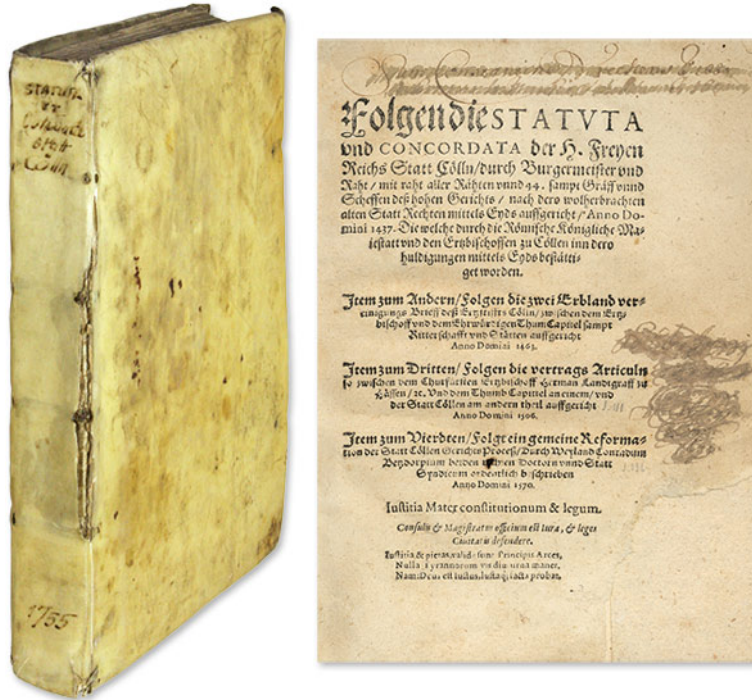 STATUTA
ET
1755
Folgen die STATVTA
vnd CONCORDATA der H. Freyen
Reichs Statt Cölln/durch Burgermeister vnd
Raht / mit raht aller Rähten vnnd 44. sampt Gräff vnnd
Scheffen deß hohen Gerichts / nach dero wolherbrachten
alten Statt Rechten mittels Eyds auffgericht / Anno Do-
mini 1437. Die welche durch die Römische Königliche Ma-
iestatt vnd den Ertzbischoffen zu Cöllen inn dero
huldigungen mittels Eyds bestätti-
get worden.
Item zum Andern/Folgen die zwei Erbland ver-
einigungs Brieff deß Ertzstiffts Cölln/zwischen dem Ertz-
bischoff vnd dem Ehrwürdigen Thum Capitel sampt
Ritterschafft vnd Stätten auffgericht
Anno Domini 1463.
Item zum Dritten/Folgen die vertrags Articuln
so zwischen dem Churfürsten Ertzbischoff Herman Landtgraff zu
Hässen / ꝛc. Vnd dem Thumb Capittel an einem/vnd
der Statt Cöllen am andern theil auffgericht
Anno Domini 1506.
Item zum Vierdten/Folgt ein gemeine Reforma-
tion der Statt Cöllen Gerichts Proceß/Durch Weyland Conradum
Betzdorpium beyden Rechten Doctorn vnnd Statt
Syndicum ordentlich beschrieben
Anno Domini 1570.
Iustitia Mater constitutionum & legum.
Consulis & Magistratus officium est iura, & leges
Ciuitatis defendere.
Iustitia & pietas, validæ sunt Principis Arces,
Nulla Tyrannorum vis diuturna manet,
Nam Deus est iustus, iustaq; facta probat.